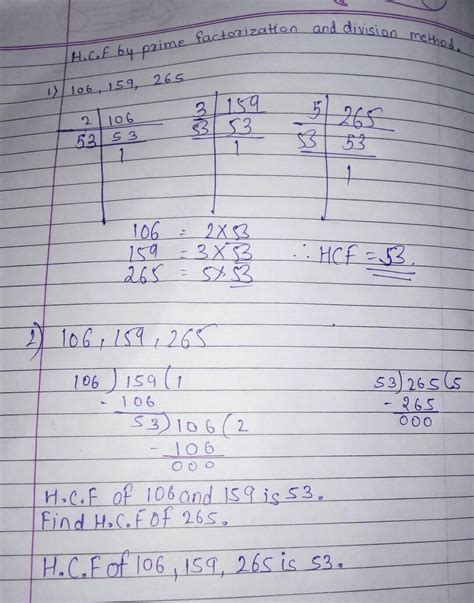 H.C.F by prime factorization and division method.
1) 106, 159, 265
2 | 106
53 | 53
1
3 | 159
53 | 53
1
5 | 265
53 | 53
1
106 = 2×53
159 = 3×53
265 = 5×53
∴ HCF = 53.
2) 106, 159, 265
106 ) 159 ( 1
- 106
53 ) 106 ( 2
- 106
000
53 ) 265 ( 5
- 265
000
H.C.F of 106 and 159 is 53.
Find H.C.F of 265.
H.C.F of 106, 159, 265 is 53.